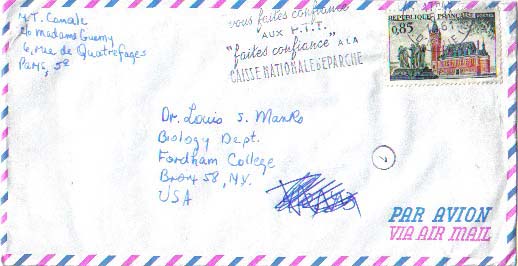 M.T. Camale
c/o Madame Guemy
6, rue de Quatrefages
Paris, 5e
vous faites confiance
AUX P.T.T.
"faites confiance" A LA
CAISSE NATIONALE D'EPARGNE
REPUBLIQUE FRANÇAISE
POSTES
0,85
Dr. Louis S. Marks
Biology Dept.
Fordham College
Bronx 58, N.Y.
USA
PAR AVION
VIA AIR MAIL